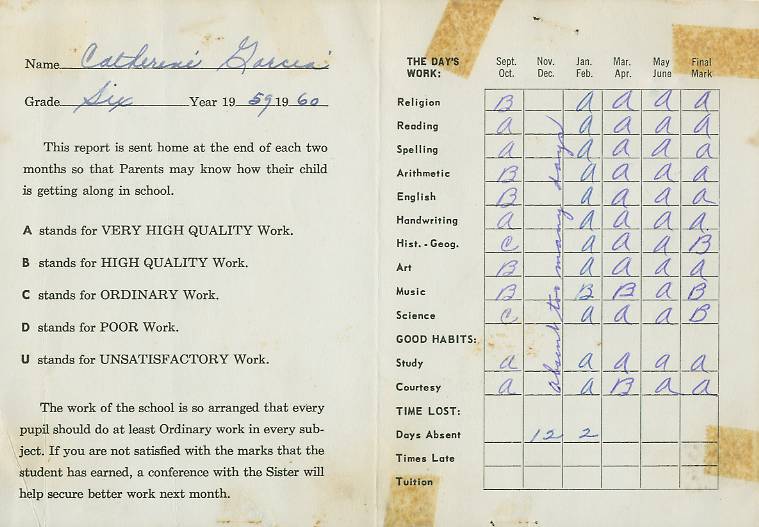 Name Catherine Garcia
Grade Six Year 19 59 19 60
This report is sent home at the end of each two
months so that Parents may know how their child
is getting along in school.
A stands for VERY HIGH QUALITY Work.
B stands for HIGH QUALITY Work.
C stands for ORDINARY Work.
D stands for POOR Work.
U stands for UNSATISFACTORY Work.
The work of the school is so arranged that every
pupil should do at least Ordinary work in every sub-
ject. If you are not satisfied with the marks that the
student has earned, a conference with the Sister will
help secure better work next month.
THE DAY'S Sept. Nov. Jan. Mar. May Final
WORK: Oct. Dec. Feb. Apr. June Mark
Religion B a a a a
Reading a a a a a
Spelling a a a a a
Arithmetic B a a a a
English B a a a a
Handwriting a a a a a
Hist. - Geog. C a a a B
Art B a a a a
Music B B B a B
Science C a a a B
absent too many days
GOOD HABITS:
Study a a a a a
Courtesy a a B a a
TIME LOST:
Days Absent 12 2
Times Late
Tuition